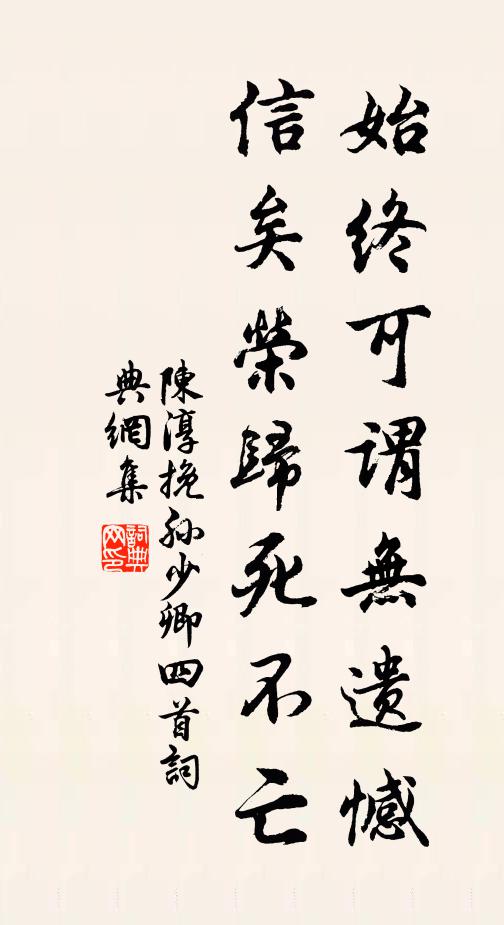 始終可謂無遺憾
信矣榮歸死不亡
陳淳挽孙少卿四首詞
典網集
詞典網印